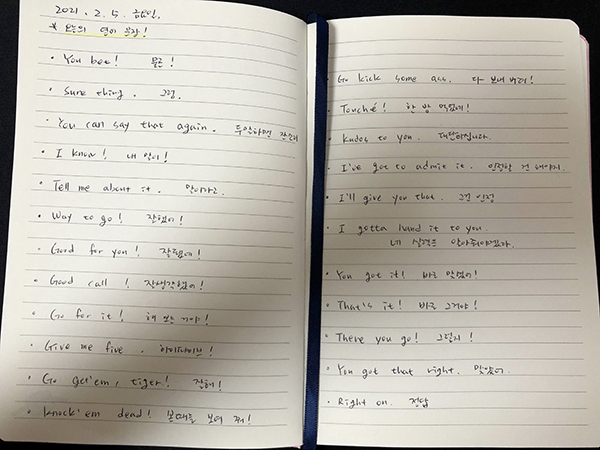 2021. 2. 5. 금요일.
* 오늘의 영어 문장!
• You bet! 물론!
• Sure thing. 그럼.
• You can say that again. 두말하면 잔소리
• I know! 내 말이!
• Tell me about it. 말이라고.
• Way to go! 잘했어!
• Good for you! 잘됐네!
• Good call! 잘 생각했어!
• Go for it! 해 보는 거야!
• Give me five. 하이파이브!
• Go get'em, tiger! 잘해!
• Knock'em dead! 본때를 보여 줘!
• Go kick some ass. 다 보내 버려!
• Touché! 한 방 먹었네!
• Kudos to you. 대단하십니다.
• I've got to admit it. 인정할 건 해야지.
• I'll give you that. 그건 인정
• I gotta hand it to you.
네 실력은 알아줘야겠다.
• You got it! 바로 맞혔어!
• That's it! 바로 그거야!
• There you go! 그렇지!
• You got that right. 맞았어.
• Right on. 정답